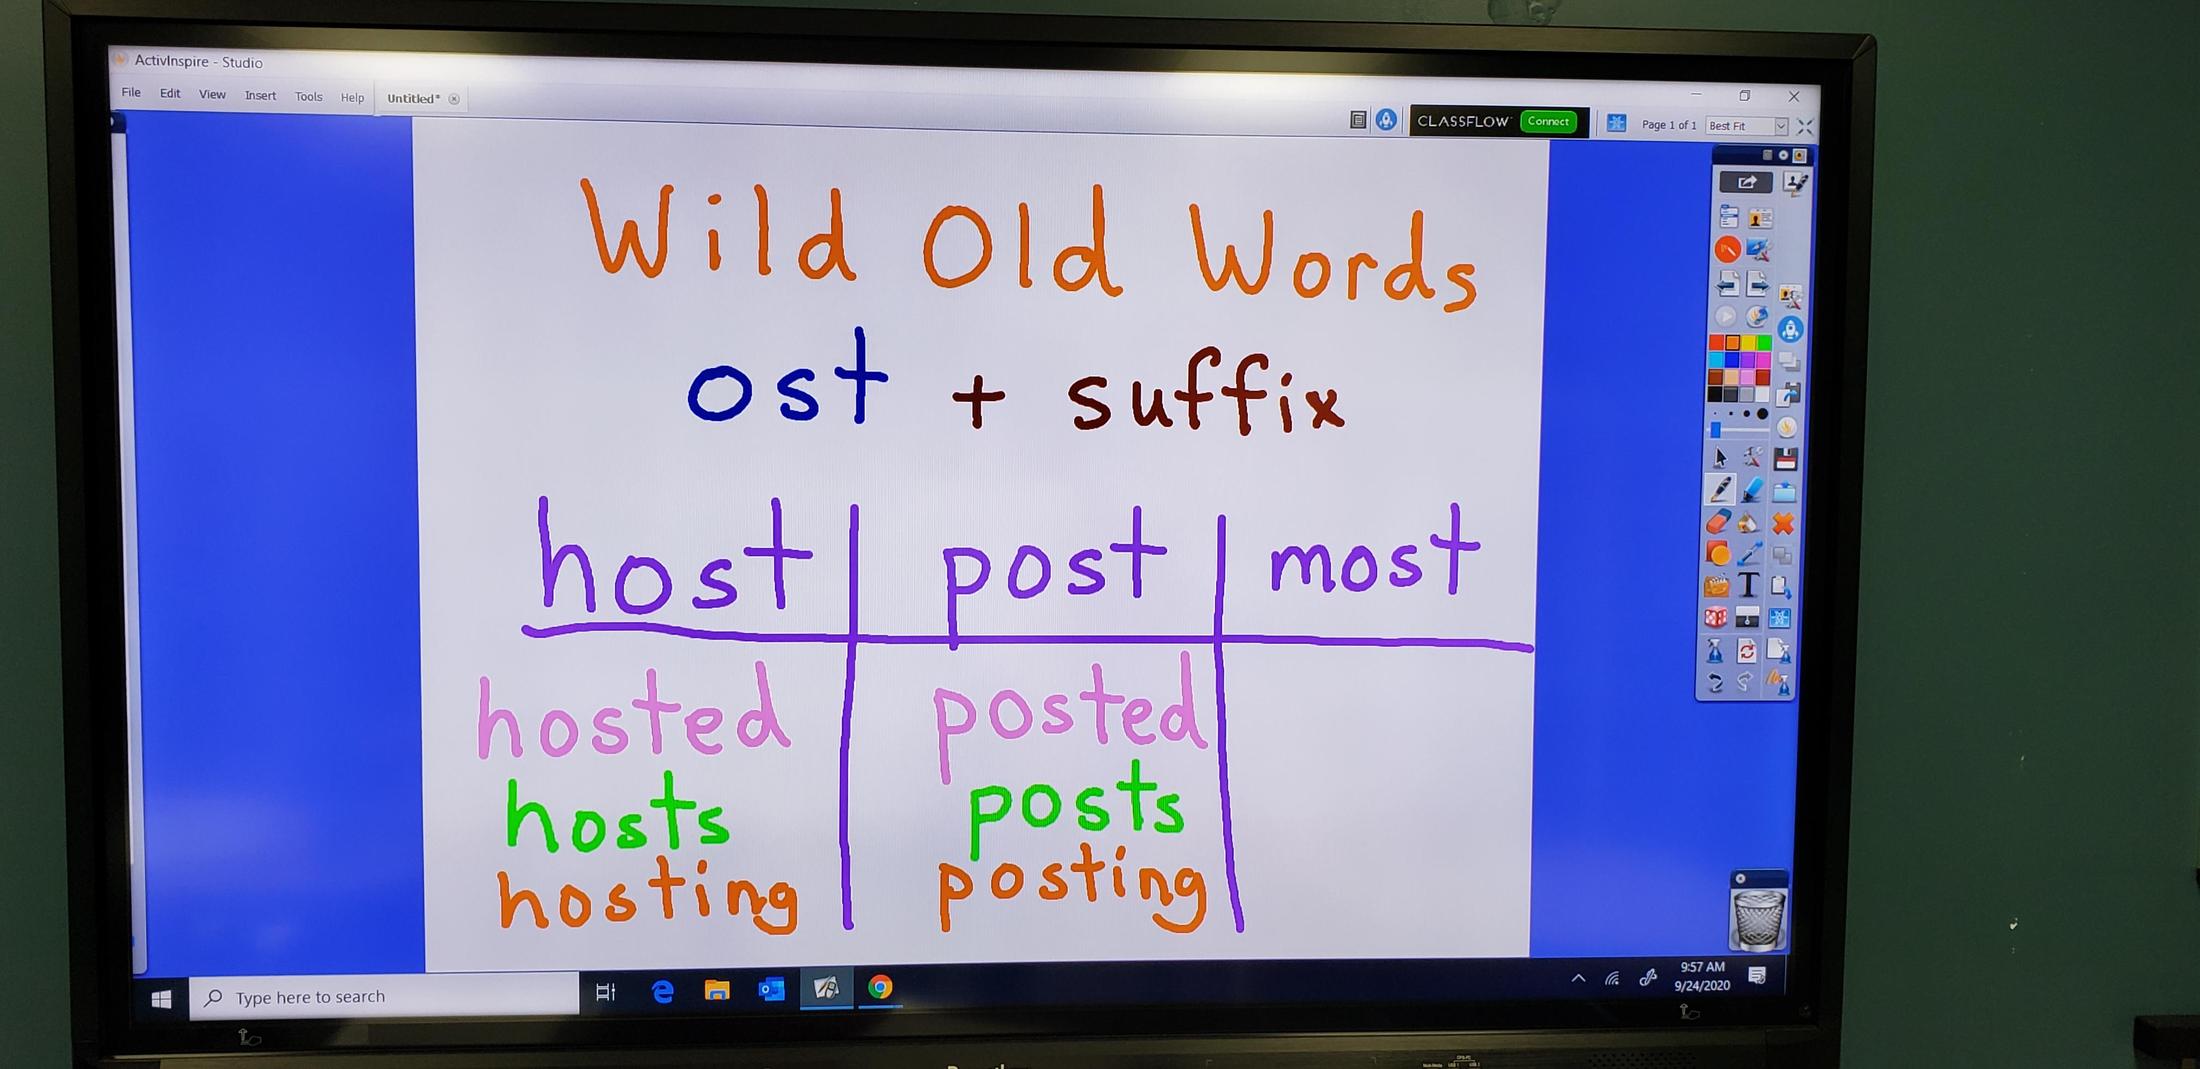 ActivInspire - Studio
File Edit View Insert Tools Help Untitled*
CLASSFLOW Connect Page 1 of 1 Best Fit
Wild Old Words
ost + suffix
host post most
hosted posted
hosts posts
hosting posting
T
Type here to search
9:57 AM
9/24/2020